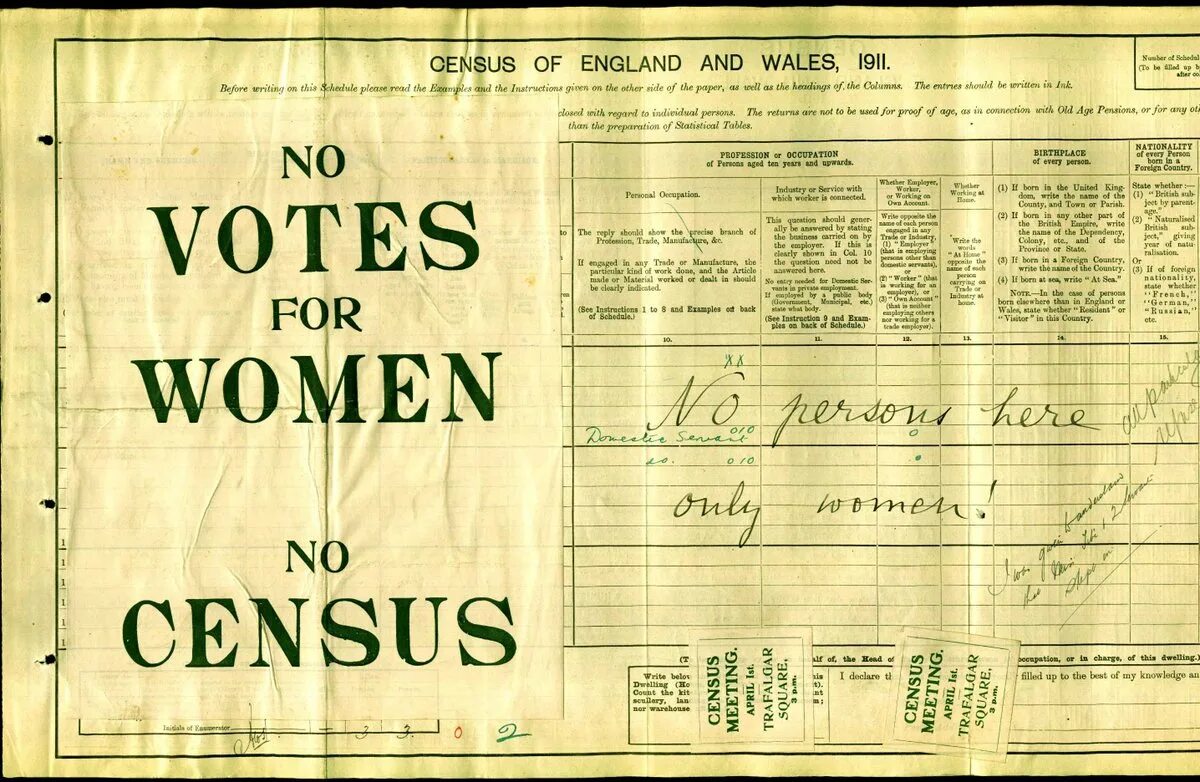 CENSUS OF ENGLAND AND WALES, 1911.
Number of Schedul
(To be filled up b
after co
Before writing on this Schedule please read the Examples and the Instructions given on the other side of the paper, as well as the headings of the Columns. The entries should be written in Ink.
closed with regard to individual persons. The returns are not to be used for proof of age, as in connection with Old Age Pensions, or for any oth
than the preparation of Statistical Tables.
NO
VOTES
FOR
WOMEN
NO
CENSUS
PROFESSION or OCCUPATION
of Persons aged ten years and upwards.
Personal Occupation.
The reply should show the precise branch of
Profession, Trade, Manufacture, &c.
If engaged in any Trade or Manufacture, the
particular kind of work done, and the Article
made or Material worked or dealt in should
be clearly indicated.
(See Instructions 1 to 8 and Examples on back
of Schedule.)
10.
Industry or Service with
which worker is connected.
This question should gener-
ally be answered by stating
the business carried on by
the employer. If this is
clearly shown in Col. 10
the question need not be
answered here.
No entry needed for Domestic Ser-
vants in private employment.
If employed by a public body
(Government, Municipal, etc.)
state what body.
(See Instruction 9 and Exam-
ples on back of Schedule.)
11.
Whether Employer,
Worker,
or Working on
Own Account.
Write opposite the
name of each person
engaged in any
Trade or Industry,
(1) "Employer"
(that is employing
persons other than
domestic servants),
or
(2) "Worker" (that
is working for an
employer), or
(3) "Own Account"
(that is neither
employing others
nor working for a
trade employer).
12.
Whether
Working at
Home.
Write the
words
"At Home"
opposite the
name of each
person
carrying on
Trade or
Industry at
home.
13.
BIRTHPLACE
of every person.
(1) If born in the United King-
dom, write the name of the
County, and Town or Parish.
(2) If born in any other part of
the British Empire, write
the name of the Dependency,
Colony, etc., and of the
Province or State.
(3) If born in a Foreign Country,
write the name of the Country.
(4) If born at sea, write "At Sea."
NOTE.—In the case of persons
born elsewhere than in England or
Wales, state whether "Resident" or
"Visitor" in this Country.
14.
NATIONALITY
of every Person
born in a
Foreign Country.
State whether:—
(1) "British sub-
ject by parent-
age."
(2) "Naturalised
British sub-
ject," giving
year of natu-
ralisation.
Or
(3) If of foreign
nationality,
state whether
"French,"
"German,"
"Russian,"
etc.
15.
XX
No persons here
Domestic Servant 010 0
do. 010
only women!
Initials of Enumerator
3 3 0 2
CENSUS
MEETING.
APRIL 1st.
TRAFALGAR
SQUARE,
3 p.m.
CENSUS
MEETING.
APRIL 1st.
TRAFALGAR
SQUARE,
3 p.m.
alf of, the Head of
occupation, or in charge, of this dwelling.)
Write below
Dwelling (Ho
Count the kit
scullery, lan
nor warehouse
I declare th
filled up to the best of my knowledge an